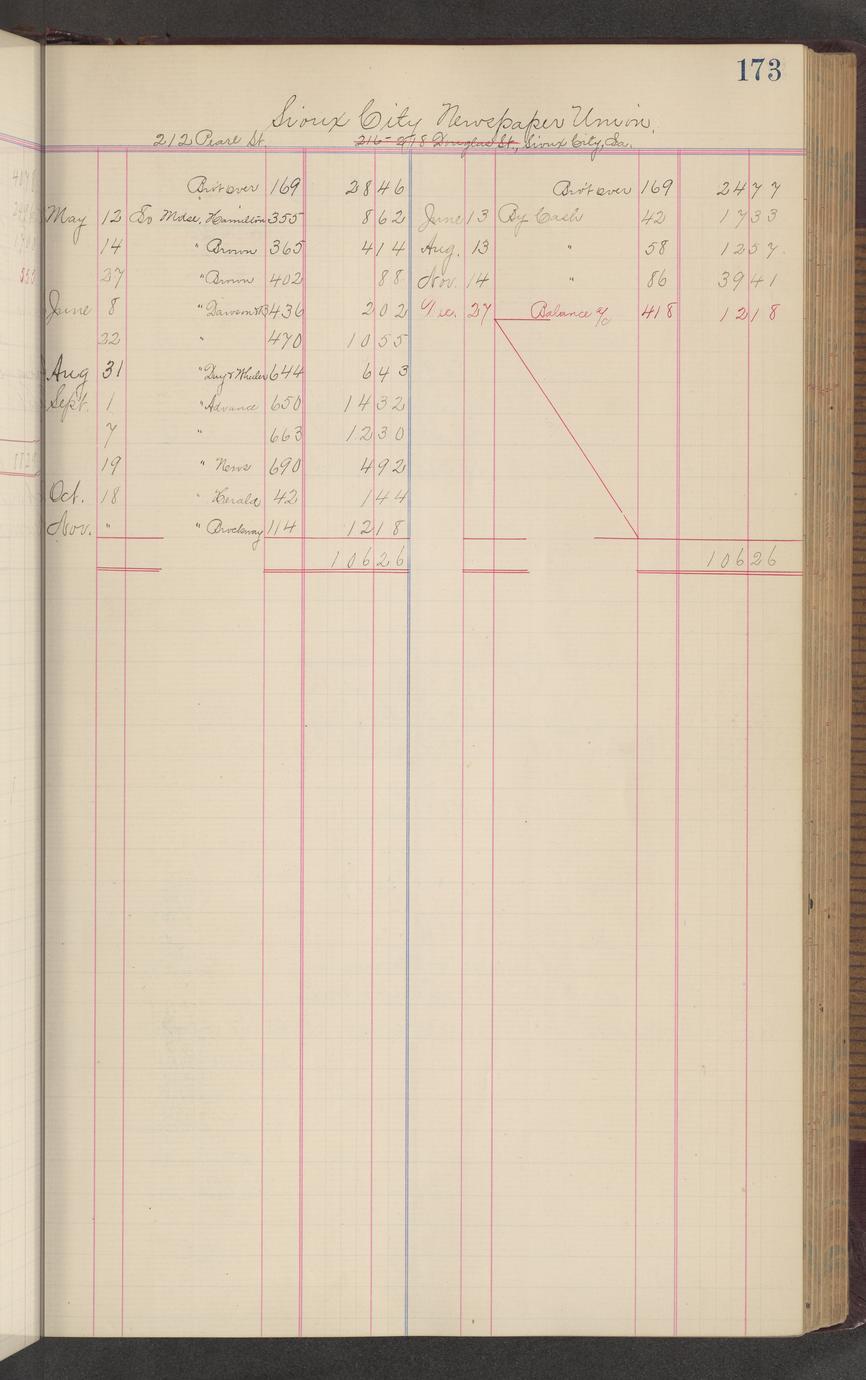 173
Sioux City Newspaper Union.
212 Pearl St. 216-218 Douglas St., Sioux City, Ia.
Bro't over 169 28 46 Bro't over 169 24 77
May 12 To Mdse, Hamilton 355 8 62 June 13 By Cash 42 17 33
14 " Brown 365 4 14 Aug. 13 " 58 12 57
27 " Brown 402 88 Nov. 14 " 86 39 41
June 8 " 436 2 02 Dec. 27 Balance a/c 418 12 18
22 " 470 10 55
Aug 31 " Day & Wheeler 644 6 43
Sept. 1 " Advance 650 14 32
7 " 663 12 30
19 " News 690 4 92
Oct. 18 " Herald 42 1 44
Nov. " " Brockway 114 12 18
106 26 106 26